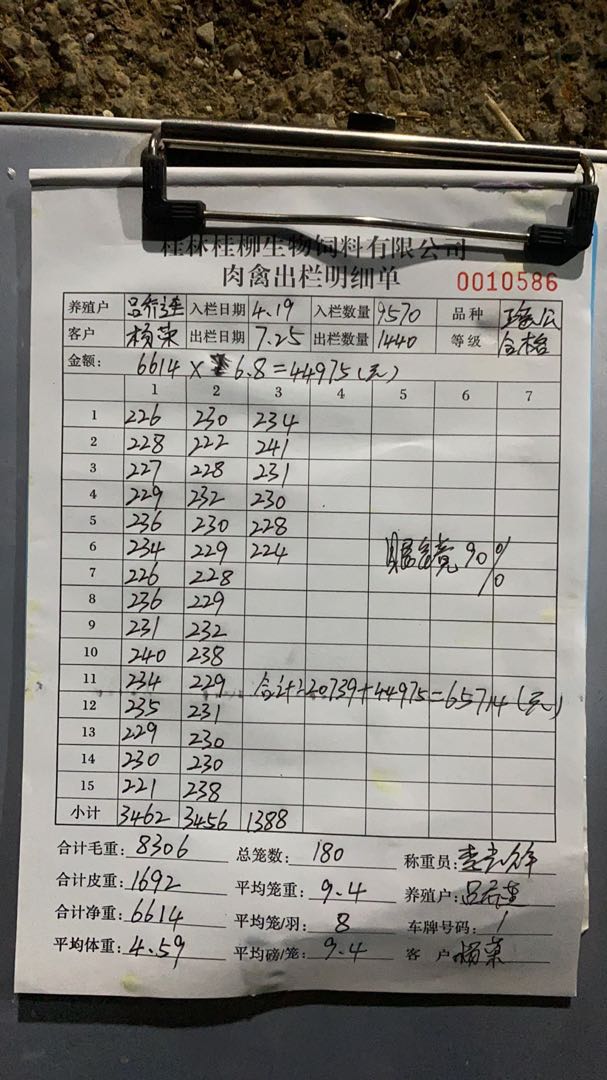 桂林桂柳生物饲料有限公司
肉禽出栏明细单 0010586
养殖户 入栏日期 4.19 入栏数量 9570 品种
客户 杨荣 出栏日期 7.25 出栏数量 1440 等级 合格
金额: 6614 × 6.8=44975(元)
1 2 3 4 5 6 7
1 226 230 234
2 228 222 241
3 227 228 231
4 229 232 230
5 236 230 228
6 234 229 224
90%
7 226 228
8 236 229
9 231 232
10 240 238
11 234 229 合计:20739+44975=65714(元)
12 235 231
13 229 230
14 230 230
15 221 238
小计 3462 3456 1388
合计毛重: 8306 总笼数: 180 称重员:
合计皮重: 1692 平均笼重: 9.4 养殖户:
合计净重: 6614 平均笼/羽: 8 车牌号码: 1
平均体重: 4.59 平均磅/笼: 9.4 客户 杨荣